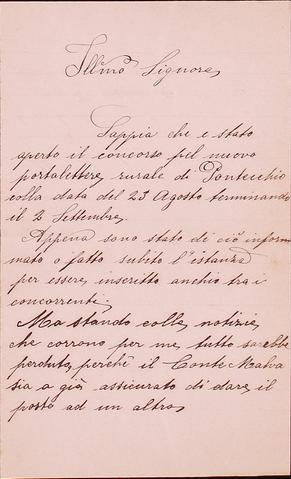 Ill.mo Signore
Sappia che e stato
aperto il concorso pel nuovo
portalettere rurale di Pontecchio
colla data del 23 Agosto terminando
il 2 Settembre.
Appena sono stato di ciò infor=
mato o fatto subito l'istanza
per essere inscritto anchio tra i
concorrenti.
Ma stando colle notizie
che corrono per me tutto sarebbe
perduto, perchè il Conte Malva
sia a già assicurato di dare il
posto ad un altro